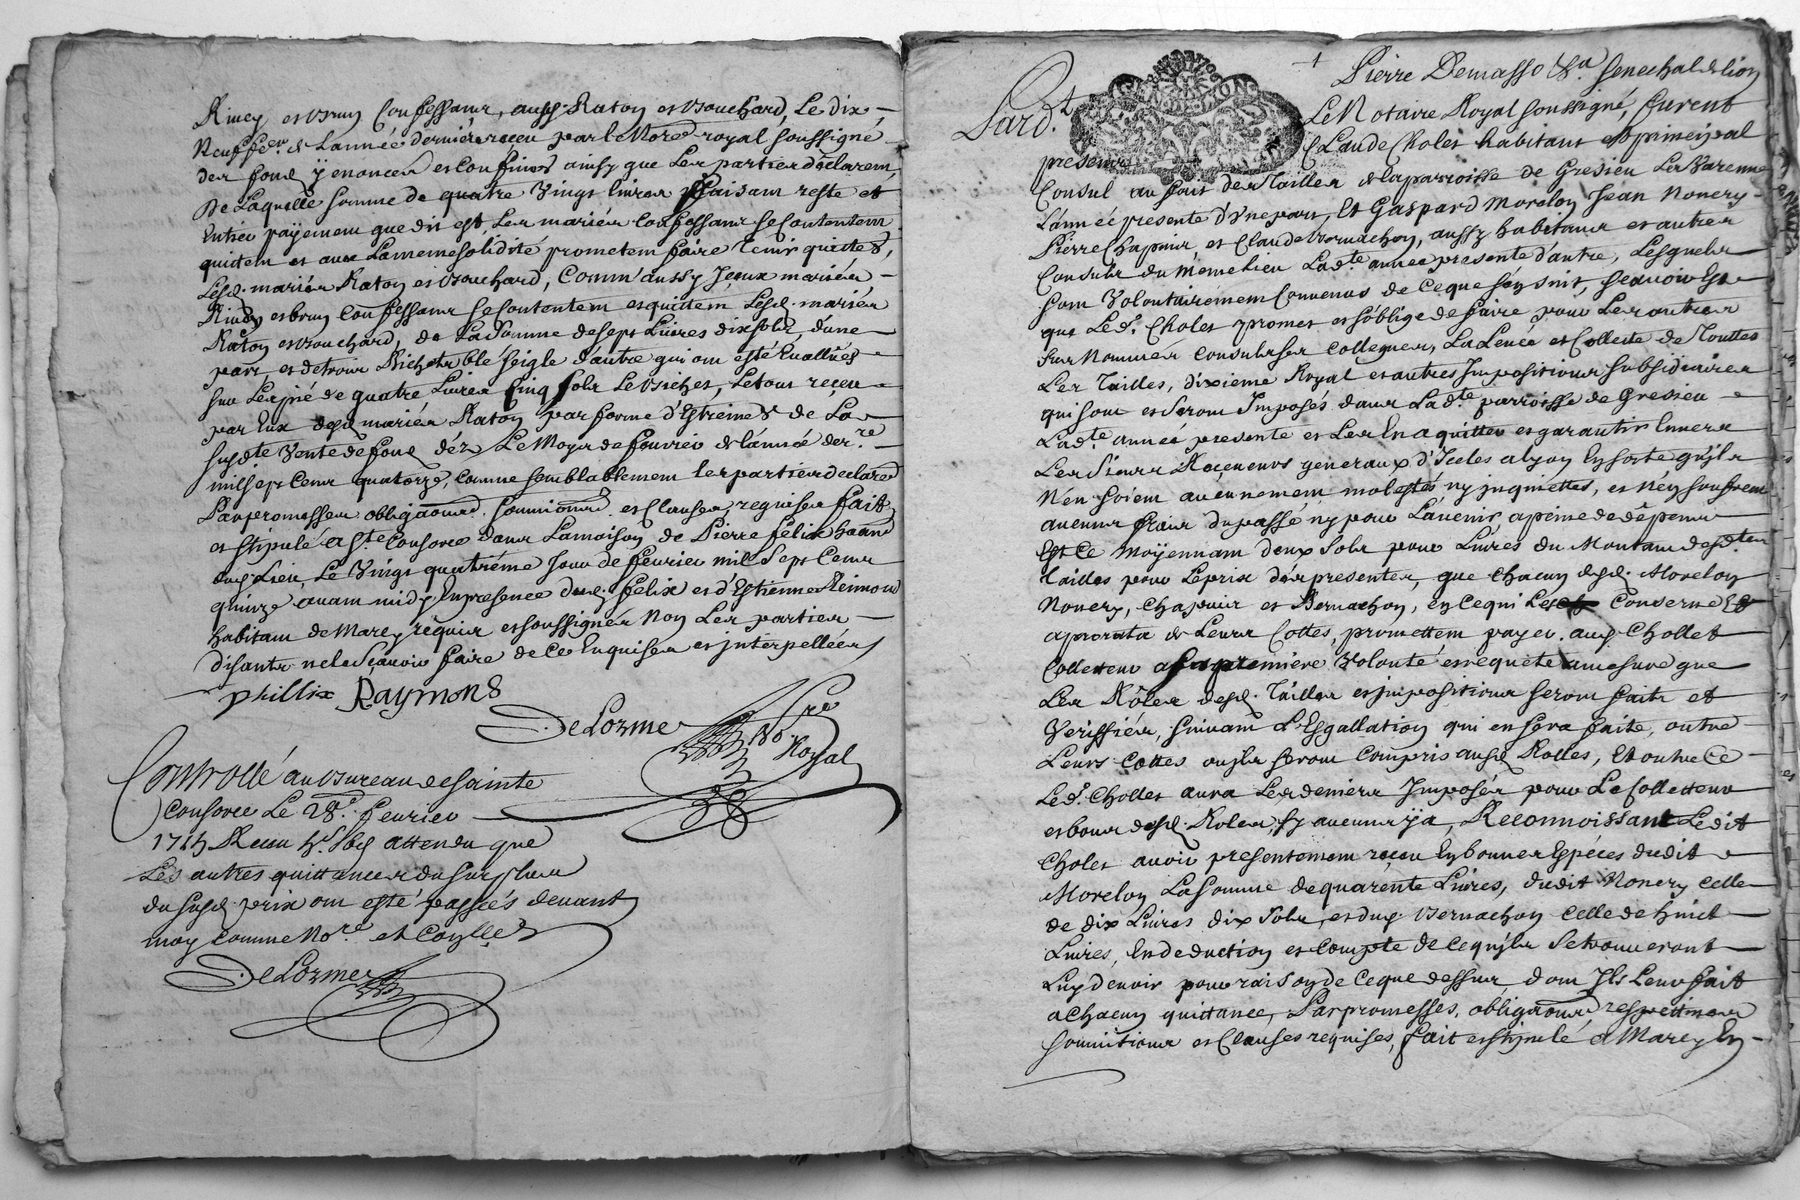 Riuey et brun Confessant, aussy Raton et Bouchard, Le dix
Neuf de L'année derniere receu par le No.re royal soussigné
des fond y enoncer et confiner ainsy que Les parties declarent
De Laquelle somme de quatre Vingt livres faisant reste et
Entier payement que dit est, Les mariés confessant se contentent
quittent et avec La meme solidité prometent faire tenir quittes,
Lesd. mariés Raton et Bouchard, Comm' aussy Iceux mariés
et brun confessant se contentent et quittent Lesd. mariés
Raton et Bouchard, de La somme de sept Livres dix sols, d'une
part, et de trois Bichets blé seigle d'autre qui ont esté Evallüés
sur Le pié de quatre Livres Cinq sols Le Bichet, Le tout receu
par Eux desd mariés Raton par forme d'Estreines de La
susd.te Vente de fond déz Le Moys de fevrier de l'année der.re
mil sept Cent quatorze, comme semblablement les parties declarent
Par promesses obliga͠ons soumi͠ons et Clauses requises fait
et stipulé a S.te Consorce dans La maison de Pierre felix
dud. Lieu, Le Vingt quatriéme Jour de fevrier mil sept Cent
quinze avant midy, En presence dud. felix et d'Estienne Reimond
habitant de Marcy requis et soussignés Non Les parties
disants ne le sçavoir faire de Ce Enquises et interpellées
phillix Raymond
DeLorme
No.re
Royal
Controllé au Bureau de Sainte
Consorce Le 28.e fevrier
1715 Receu attendu que
Les autres quittances du surplus
du susd. prix ont esté passées devant
moy comme No.re et Con.lle
DeLorme
Pierre Demasso S.r Senechal de Lion
Pard.t Le Notaire Royal soussigné, furent
presents Claude Cholet habitant et principal
Consul au fait des Tailles de la parroisse de Gresieu La Varenne
L'année presente d'Une part, Et Gaspard Morelon Jean Nonery
Pierre Chapuis et Claude Bernachon, aussy habitants et autres
Consuls du Même lieu Lad.te année presente d'autre, Lesquels
sont Volontairement Convenus de Ce que s'en suit, sçavoir Est
que Led.t Cholet promet et s'oblige de faire pour Les autres
sus Nommés Consuls ses collegues, La Levée et Collecte de Touttes
Les Tailles, dixieme Royal et autres Impositions subsidiaires
qui sont et seront Imposés dans Lad.te parroisse de Gresieu
Lad.te année presente et Les En aquitter et garantir Envers
Les sieurs Receveurs generaux d'Icelles a Lyon En sorte qu'jls
N'en soient aucunement molestés ny jnquiettés, et N'en souffrent
aucuns frais du passé ny pour L'avenir a peine de dépens
Et Ce Moÿennant deux sols pour Livres du Montant desd.ttes
Tailles pour Le prix des presentes, que Chacun desd. Morelon
Nonery, Chapuis et Bernachon, en Ce qui Les Conserne Et
a prorata de Leurs Cottes, promettent payer aud. Chollet
Collecteur a sa premiere Volonté et requête a mesure que
Les Rôles desd. Tailles et jmpositions seront faits et
Veriffiés, suivant L'Esgallation qui en sera faite, outre
Leurs Cottes qu'jls seront Compris ausd. Rolles, Et outre Ce
Led.t Chollet aura Les deniers Imposés pour Le Collecteur
et bout desd. Roles, sy aucuns y a, Reconnoissant Ledit
Cholet avoir presentement reçeu En bonnes Espéces dudit
Morelon La somme de quarente Livres, dudit Nonery Celle
de dix Livres dix sols, et dud. Bernachon Celle de huict
Livres, En deduction et Compte de Ce qu'jls se trouveront
Luy devoir pour raison de Ce que dessus, dont Ils Leur fait
a Chacun quittance, Par promesses, obliga͠ons respectives
soumitions et Clauses requises, fait et stipulé a Marcy En